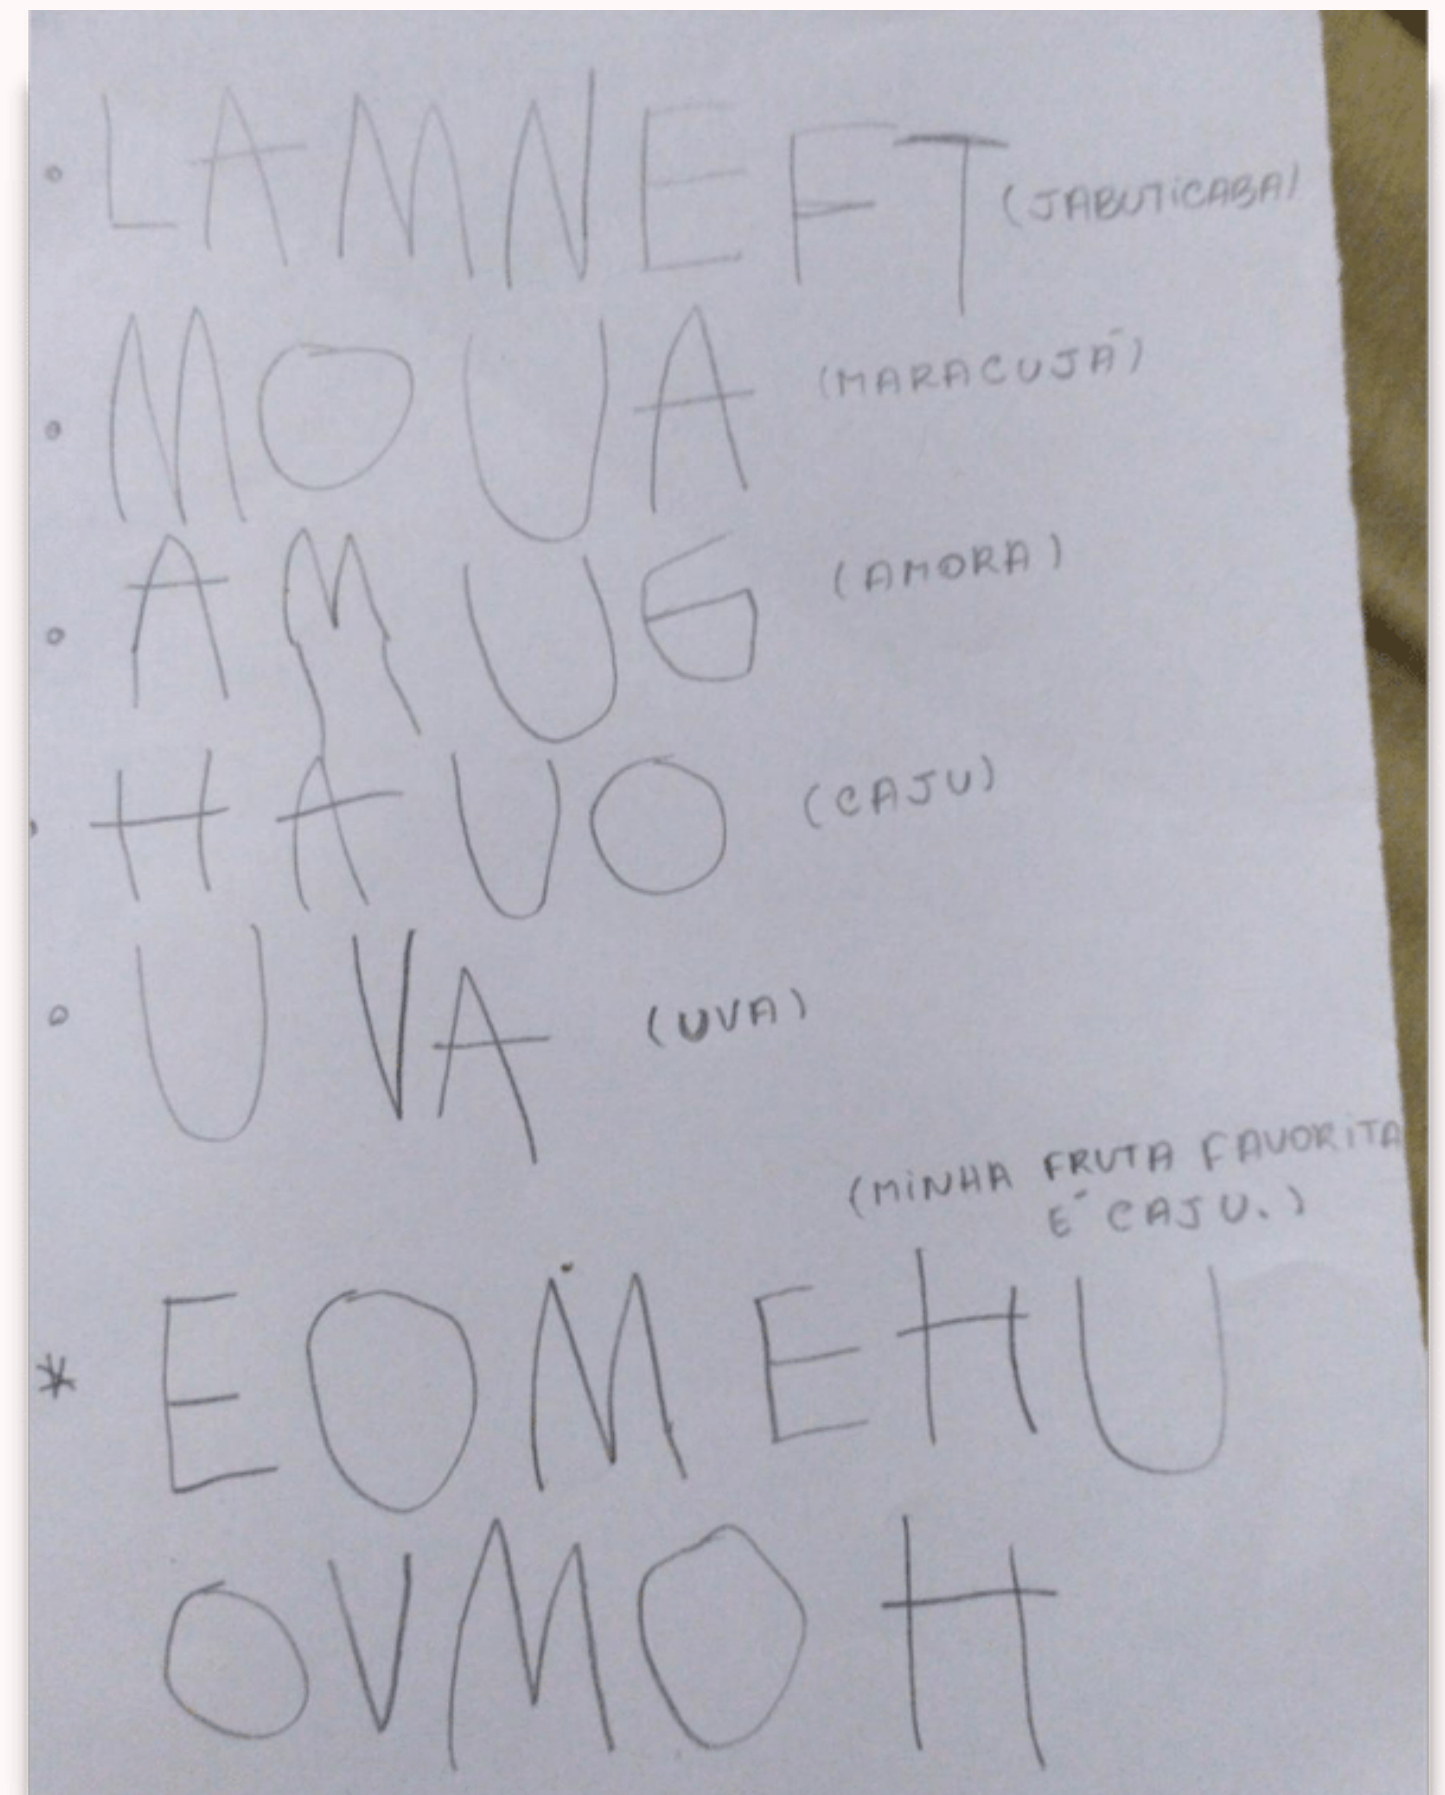 LAMNEFT (JABUTICABA)
MOUA (MARACUJÁ)
AMUG (AMORA)
HAUO (CAJU)
UVA (UVA)
(MINHA FRUTA FAVORITA
É CAJU.)
* EOMEHU
OVMOH